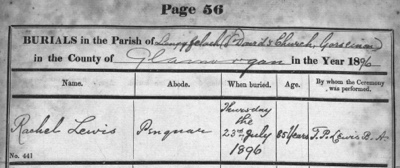 Page 56
BURIALS in the Parish of Llangyfelach, St David's Church, Gorseinon
in the County of Glamorgan in the Year 1896
Name. Abode. When buried. Age. By whom the Ceremony was performed.
Rachel Lewis Penguar Thursday the 23rd July 1896 85 Years T. P. Lewis B.A.
No. 441